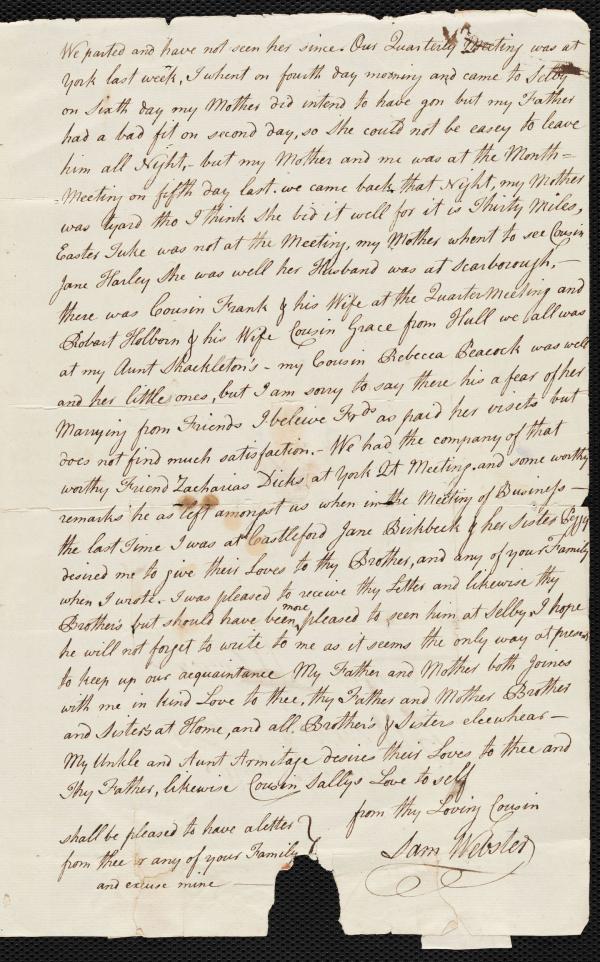 We parted and have not seen her since. Our Quarterly Meeting was at
York last week, I whent on fourth day morning and came to Selby
on sixth day my Mother did intend to have gon but my Father
had a bad fit on second day, so she could not be easey to leave
him all Night,- but my Mother and me was at the Month=
=Meeting on fifth day last. we came back that Night, my Mother
was tyard tho I think she bid it well for it is Thirty Miles,
Easter Tuke was not at the Meeting, my Mother whent to see Cousin
Jane Harley she was well her Husband was at Scarborough,-
there was Cousin Frank & his Wife at the Quarter Meeting and
Robart Holborn & his Wife Cousin Grace from Hull we all was
at my Aunt Shackleton's - my Cousin Rebecca Peacock was well
and her little ones, but I am sorry to say there his a fear of her
Marrying from Friends I beleive Frds as paid her visets but
does not find much satisfaction,- We had the company of that
worthy Friend Zacharias Dicks at York Qt Meeting. and some worthy
remarks he as left amongst us when in the Meeting of Business -
the last Time I was at Castleford Jane Birkbeck & her Sister Peggy
desired me to give their Loves to thy Brother, and any of your Family
when I wrote. I was pleased to receive thy Letter and likewise thy
Brother's but should have been more pleased to seen him at Selby. I hope
he will not forget to write to me as it seems the only way at present
to keep up our acquaintance My Father and Mother both Joines
with me in kind Love to thee, thy Father and Mother Brother
and Sisters at Home, and all Brother's & Sisters elcewhear -
My Unkle and Aunt Armitage desires their Loves to thee and
Thy Father, likewise Cousin Sallys Love to self
from thy Loving Cousin
Sam Webster
shall be pleased to have a letter
from thee or any of your Family
and excuse mine